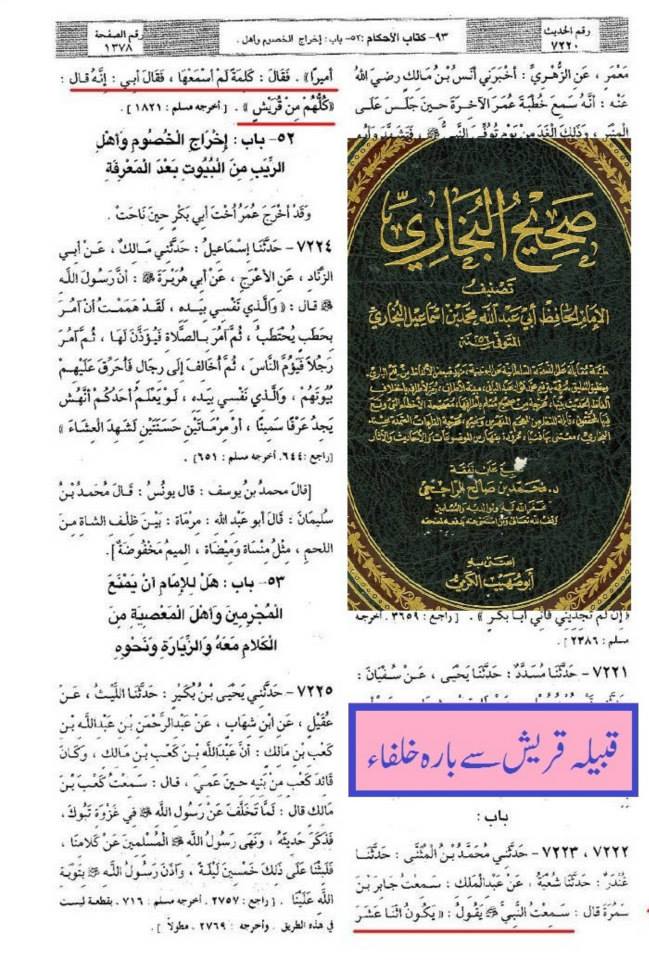 رقم الحديث
٧٢٢٠
٩٣- كتاب الأحكام / ٥٢- باب : إخراج الخصوم وأهل .
رقم الصفحة
١٣٧٨
مَعْمَرٍ ، عَنِ الزُّهْرِيِّ : أخْبَرَنِي أنَسُ بْنُ مَالِكٍ رَضِيَ اللهُ
عَنْهُ : أنَّهُ سَمِعَ خُطْبَةَ عُمَرَ الآخِرَةَ حِينَ جَلَسَ عَلَى
المِنْبَرِ ، وَذَلِكَ الْغَدَ مِنْ يَوْمِ تُوُفِّيَ النَّبِيُّ ﷺ ، فَتَشَهَّدَ وَأبُو
صَحِيحُ البُخَارِيِّ
تَصْنِيفُ
الإمَامِ الحَافِظِ أَبِي عَبْدِ اللهِ مُحَمَّدِ بْنِ إِسْمَاعِيلَ البُخَارِيِّ
المتوفى سنة ٢٥٦
طبع على نفقة
د. محمد بن صالح الراجحي
اعتنى به
أبو صهيب الكرمي
«إنْ لَمْ تَجِدِينِي فَأتِي أبَا بَكْرٍ» . [راجع : ٣٦٥٩ . أخرجه
مسلم : ٢٣٨٦] .
٧٢٢١- حَدَّثَنَا مُسَدَّدٌ : حَدَّثَنَا يَحْيَى ، عَنْ سُفْيَانَ :
قبیلہ قریش سے بارہ خلفاء
باب :
٧٢٢٢ ، ٧٢٢٣- حَدَّثَنِي مُحَمَّدُ بْنُ الْمُثَنَّى : حَدَّثَنَا
غُنْدَرٌ : حَدَّثَنَا شُعْبَةُ ، عَنْ عَبْدِ الْمَلِكِ : سَمِعْتُ جَابِرَ بْنَ
سَمُرَةَ قَالَ : سَمِعْتُ النَّبِيَّ ﷺ يَقُولُ : «يَكُونُ اثْنَا عَشَرَ
أمِيراً» . فَقَالَ : كَلِمَةً لَمْ أسْمَعْهَا ، فَقَالَ أبِي : إنَّهُ قَالَ :
«كُلُّهُمْ مِنْ قُرَيْشٍ» . [أخرجه مسلم : ١٨٢١] .
٥٢- باب : إِخْرَاجِ الْخُصُومِ وَأهْلِ
الرِّيَبِ مِنَ الْبُيُوتِ بَعْدَ الْمَعْرِفَةِ
وَقَدْ أخْرَجَ عُمَرُ أُخْتَ أبِي بَكْرٍ حِينَ نَاحَتْ .
٧٢٢٤- حَدَّثَنَا إِسْمَاعِيلُ : حَدَّثَنِي مَالِكٌ ، عَنْ أبِي
الزِّنَادِ ، عَنِ الأعْرَجِ ، عَنْ أبِي هُرَيْرَةَ ﷺ : أنَّ رَسُولَ اللهِ
ﷺ قال : «وَالَّذِي نَفْسِي بِيَدِهِ ، لَقَدْ هَمَمْتُ أنْ آمُرَ
بِحَطَبٍ يُحْتَطَبُ ، ثُمَّ آمُرَ بِالصَّلاةِ فَيُؤَذَّنَ لَهَا ، ثُمَّ آمُرَ
رَجُلاً فَيَؤُمَّ النَّاسَ ، ثُمَّ أخَالِفَ إِلَى رِجَالٍ فَأحَرِّقَ عَلَيْهِمْ
بُيُوتَهُمْ ، وَالَّذِي نَفْسِي بِيَدِهِ ، لَوْ يَعْلَمُ أحَدُكُمْ أنَّهُ
يَجِدُ عَرْقاً سَمِيناً ، أوْ مِرْمَاتَيْنِ حَسَنَتَيْنِ لَشَهِدَ الْعِشَاءَ»
[راجع : ٦٤٤. أخرجه مسلم : ٦٥١] .
[قَالَ محمد بن يوسف : قَالَ يُونُسُ : قَالَ مُحَمَّدُ بْنُ
سُلَيْمَانَ : قَالَ أبو عَبْد الله : مِرْمَاة : بَيْنَ ظِلْفِ الشاةِ مِنَ
اللحمِ ، مِثْلُ مِنْسَاةٍ وَمِيضَاةٍ ، الميمُ مَخْفُوضَةٌ] .
٥٣- باب : هَلْ لِلإمَامِ أنْ يَمْنَعَ
الْمُجْرِمِينَ وَأهْلَ الْمَعْصِيَةِ مِنَ
الْكَلَامِ مَعَهُ وَالزِّيَارَةِ وَنَحْوِهِ
٧٢٢٥- حَدَّثَنِي يَحْيَى بْنُ بُكَيْرٍ : حَدَّثَنَا اللَّيْثُ ، عَنْ
عُقَيْلٍ ، عَنِ ابْنِ شِهَابٍ ، عَنْ عَبْدِالرَّحْمَنِ بْنِ عَبْدِاللهِ بْنِ
كَعْبِ بْنِ مَالِكٍ : أنَّ عَبْدَاللهِ بْنَ كَعْبِ بْنِ مَالِكٍ ، وَكَانَ
قَائِدَ كَعْبٍ مِنْ بَنِيهِ حِينَ عَمِيَ ، قَالَ : سَمِعْتُ كَعْبَ بْنَ
مَالِكٍ قَالَ : لَمَّا تَخَلَّفَ عَنْ رَسُولِ اللهِ ﷺ فِي غَزْوَةِ تَبُوكَ،
فَذَكَرَ حَدِيثَهُ ، وَنَهَى رَسُولُ اللهِ ﷺ الْمُسْلِمِينَ عَنْ كَلامِنَا ،
فَلَبِثْنَا عَلَى ذَلِكَ خَمْسِينَ لَيْلَةً ، وَآذَنَ رَسُولُ اللهِ ﷺ بِتَوْبَةِ
اللهِ عَلَيْنَا . [راجع : ٢٧٥٧. أخرجه مسلم : ٧١٦ . بقطعة ليست
في هذه الطريق . وأخرجه : ٢٧٦٩ . مطولاً] .